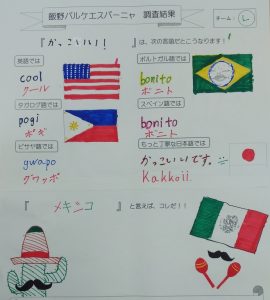 飯野パルケエスパーニャ 調査結果
チーム： し
『かっこいい！ 』は、次の言語だとこうなります！
英語では
cool
クール
ポルトガル語では
bonito
ボニト
タガログ語では
pogi
ポギ
スペイン語では
bonito
ボニト
ビサヤ語では
gwapo
グワッポ
ちょっと丁寧な日本語では
かっこいいです。
Kakkoii
『 メキシコ 』と言えば、コレだ！！